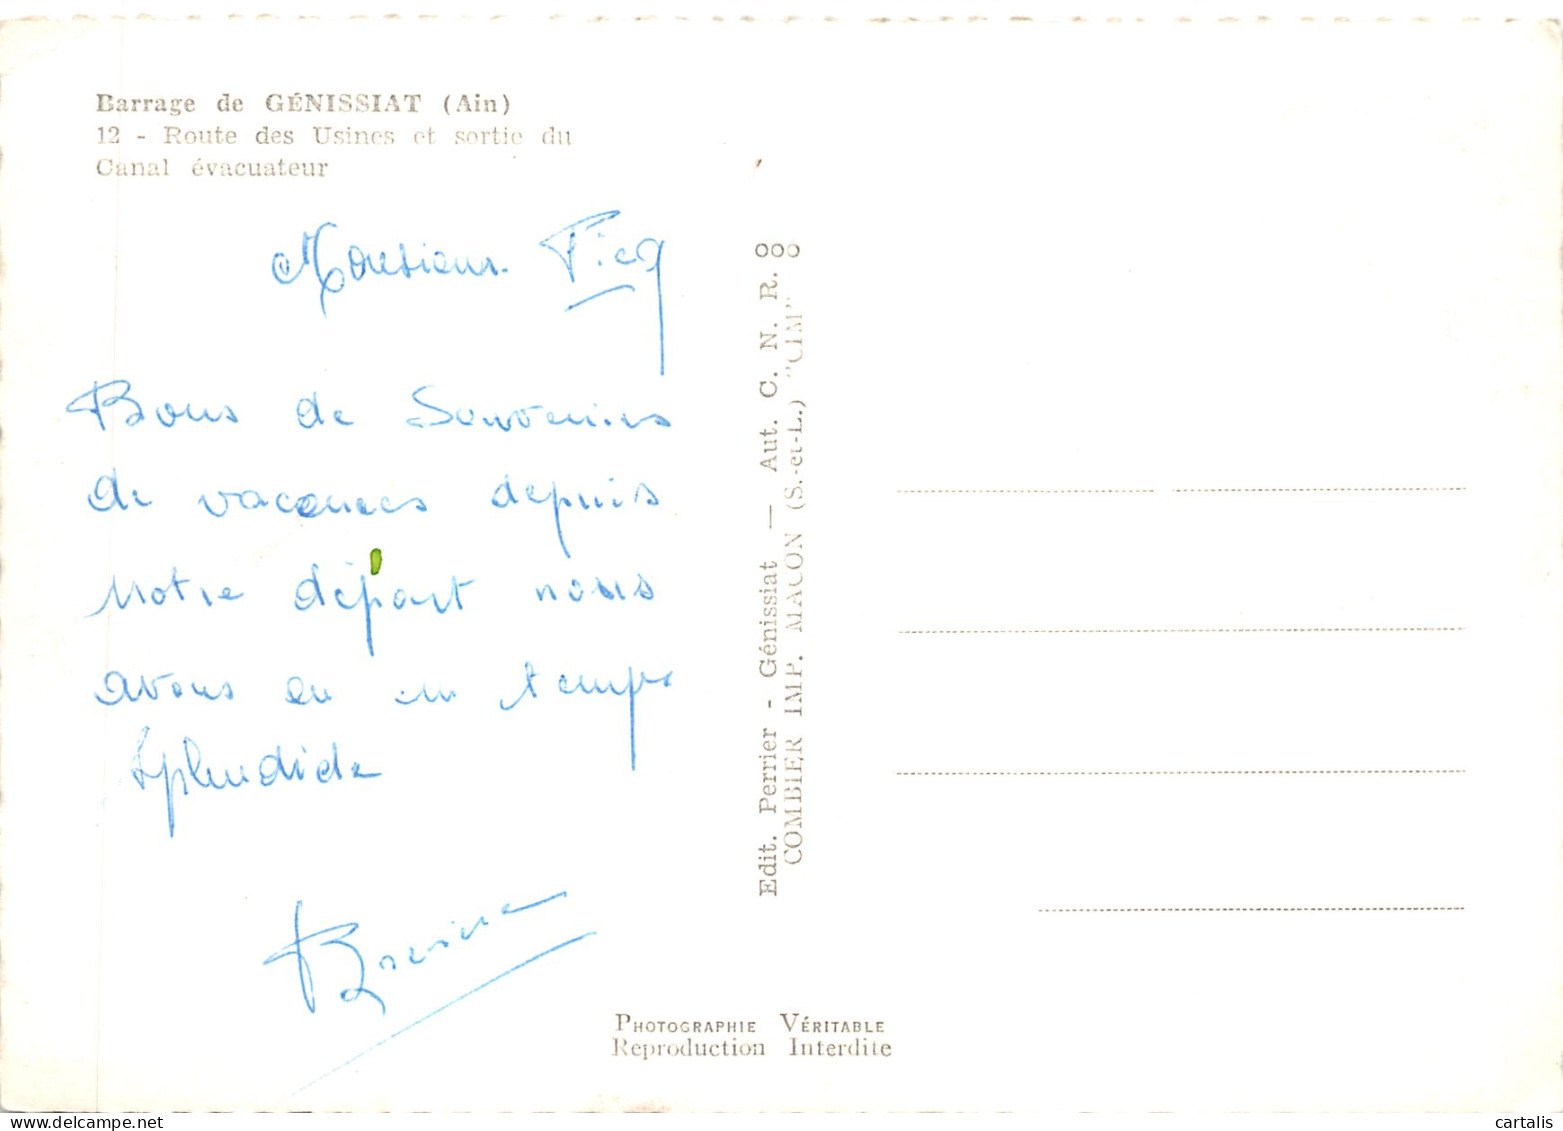 Barrage de GÉNISSIAT (Ain)
12 - Route des Usines et sortie du
Canal évacuateur
Monsieur Picq
Bons de Souvenirs
de vacances depuis
notre départ nous
avons eu un temps
splendide
Edit. Perrier - Génissiat — Aut. C. N. R. 800
COMBIER IMP. MACON (S.-et-L.) "CIM"
PHOTOGRAPHIE VÉRITABLE
Reproduction Interdite
delcampe.net
cartalis